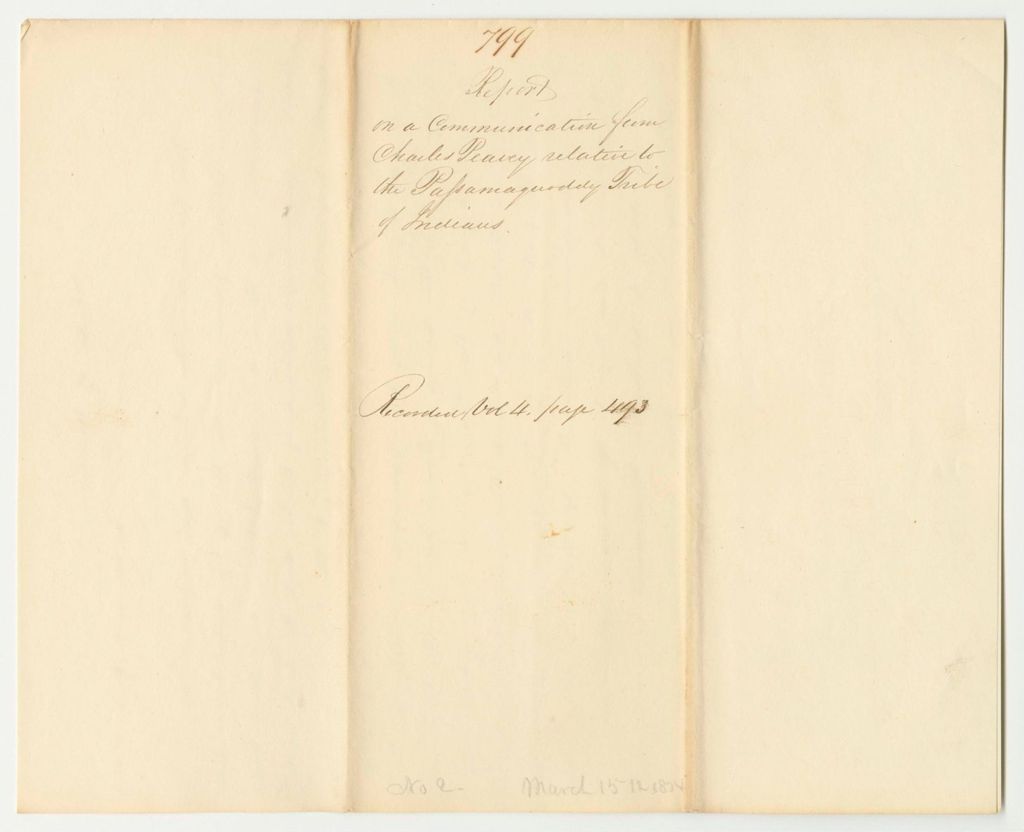 799
Report
on a Communication from
Charles Peavey relative to
the Paſsamaquoddy Tribe
of Indians.
Recorded Vol 4. page 493
No 2. March 15